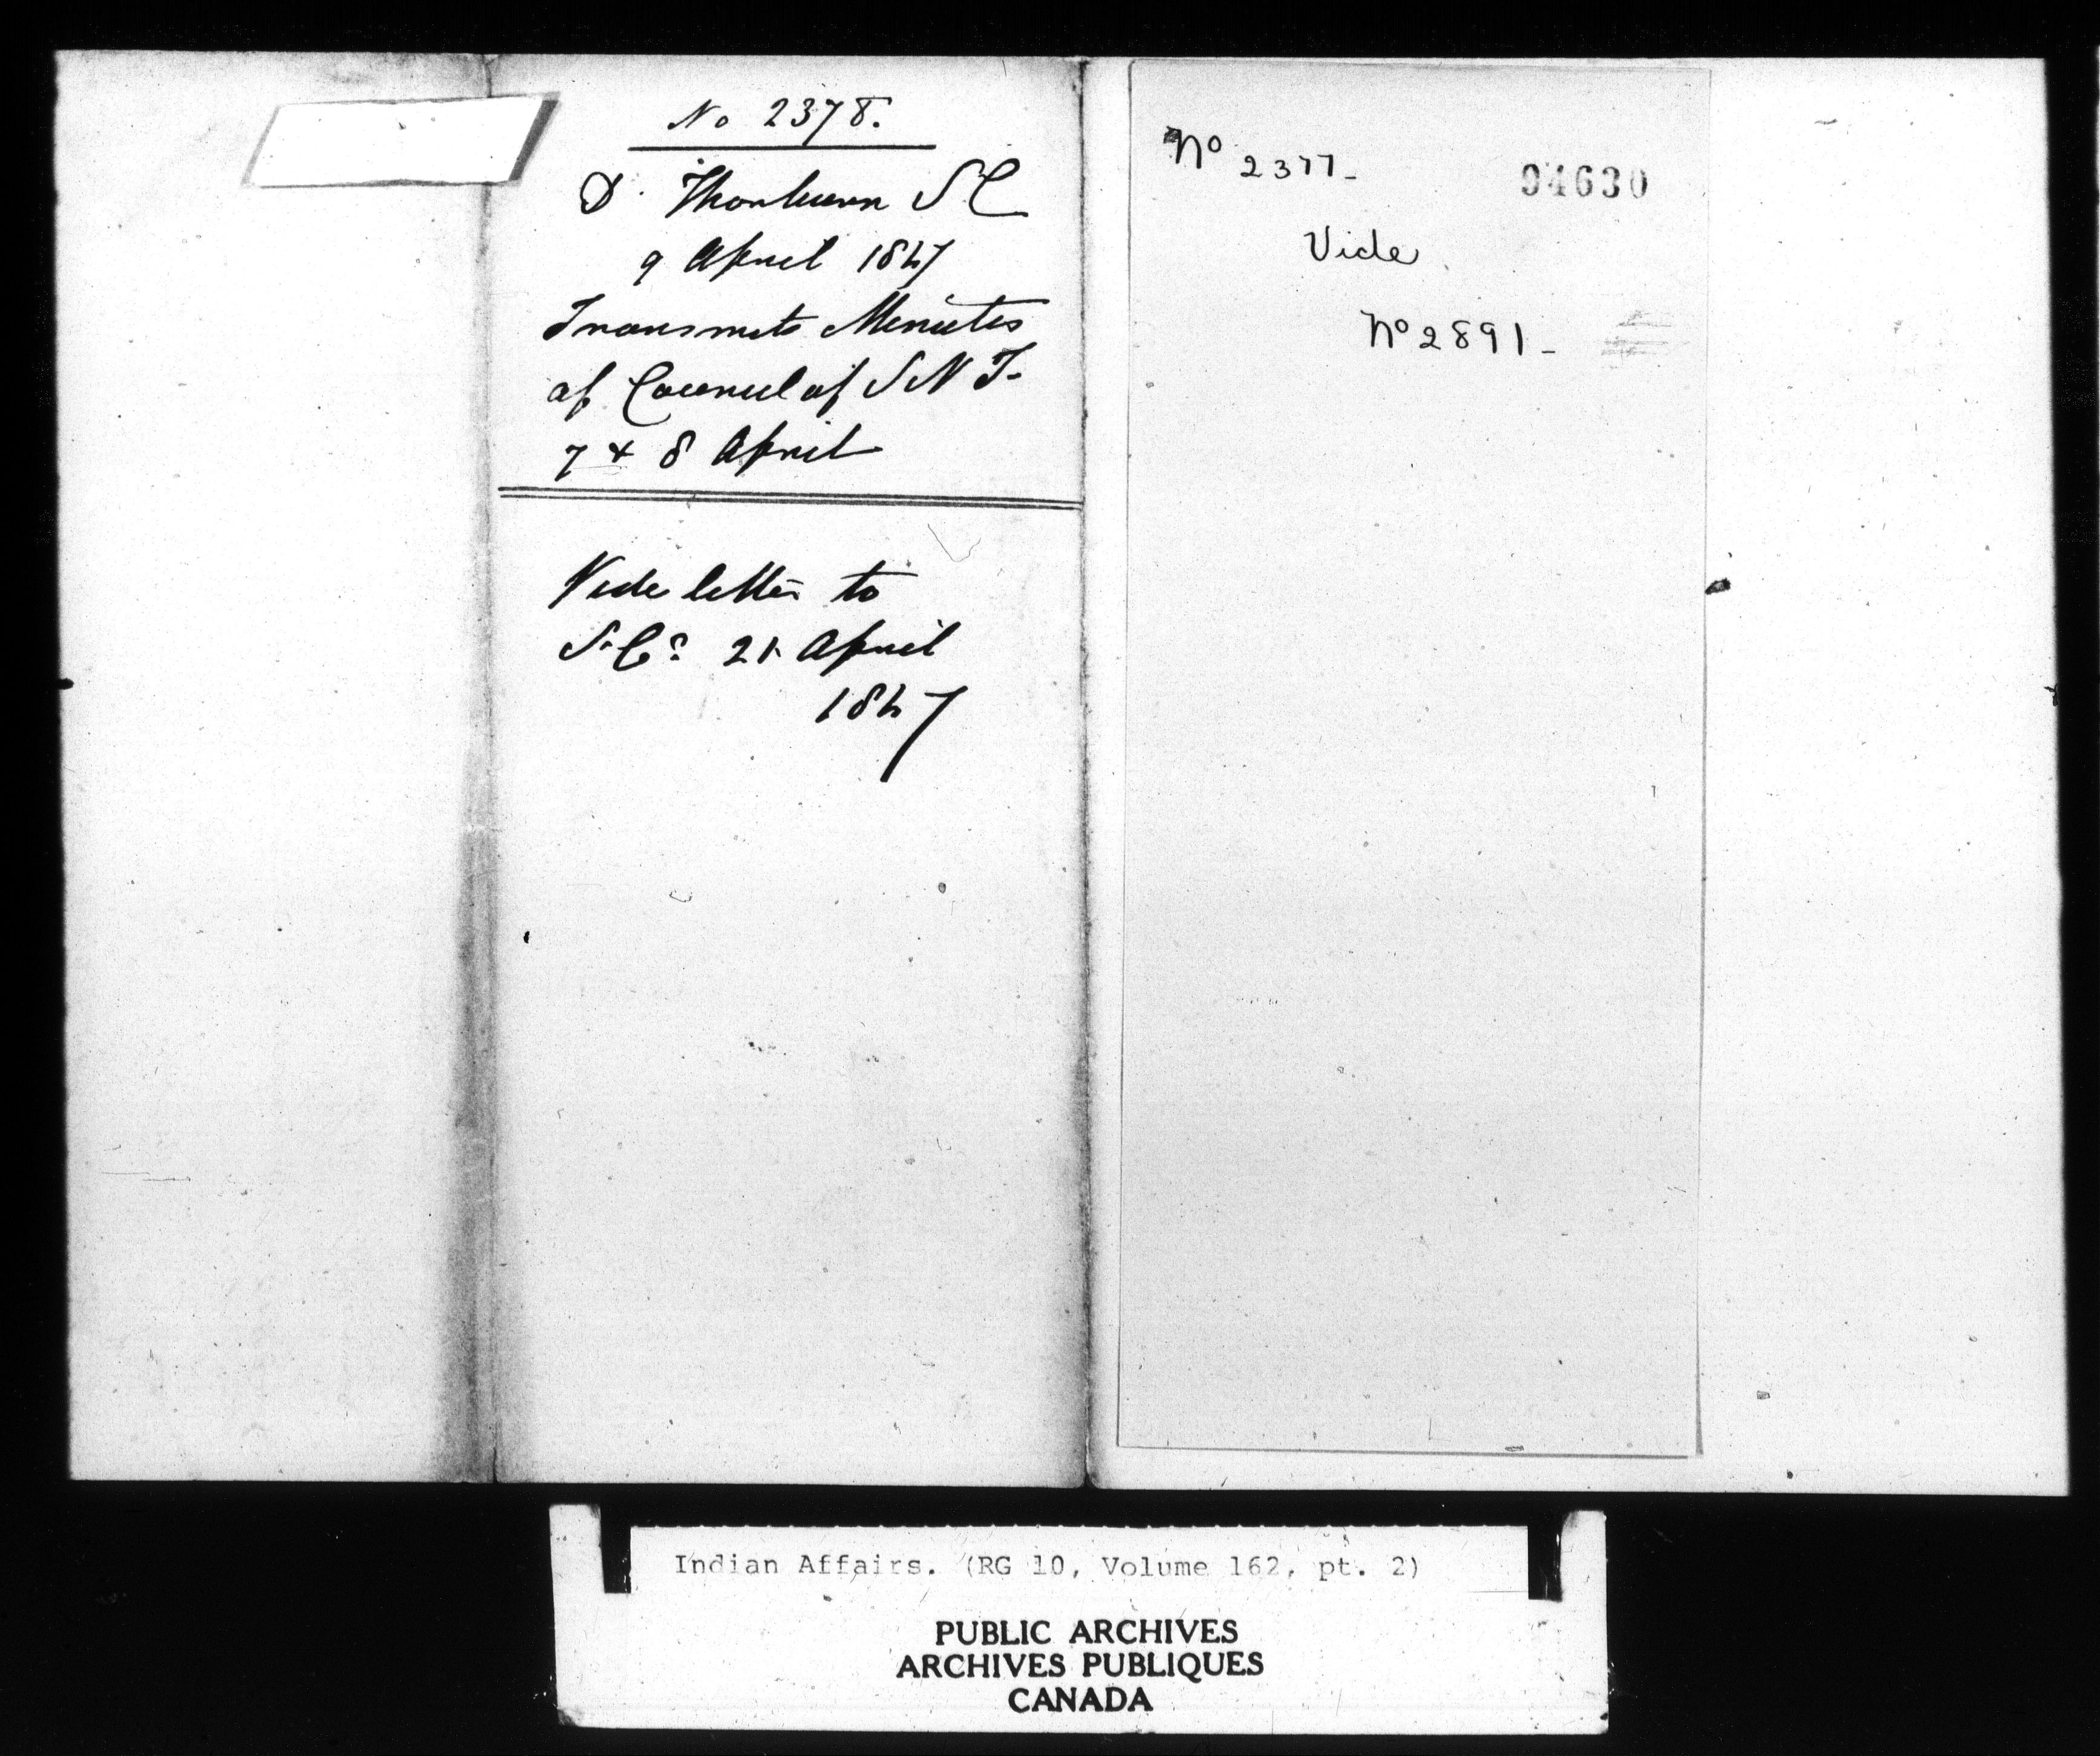 No 2378.
D. Thorburn S C
9 April 1847
Transmits Minutes
of Council of S N I-
7 & 8 April
Vide letter to
S. C. 21 April
1847
No 2377-
94630
Vide
No 2891-
Indian Affairs. (RG 10, Volume 162, pt. 2)
PUBLIC ARCHIVES
ARCHIVES PUBLIQUES
CANADA